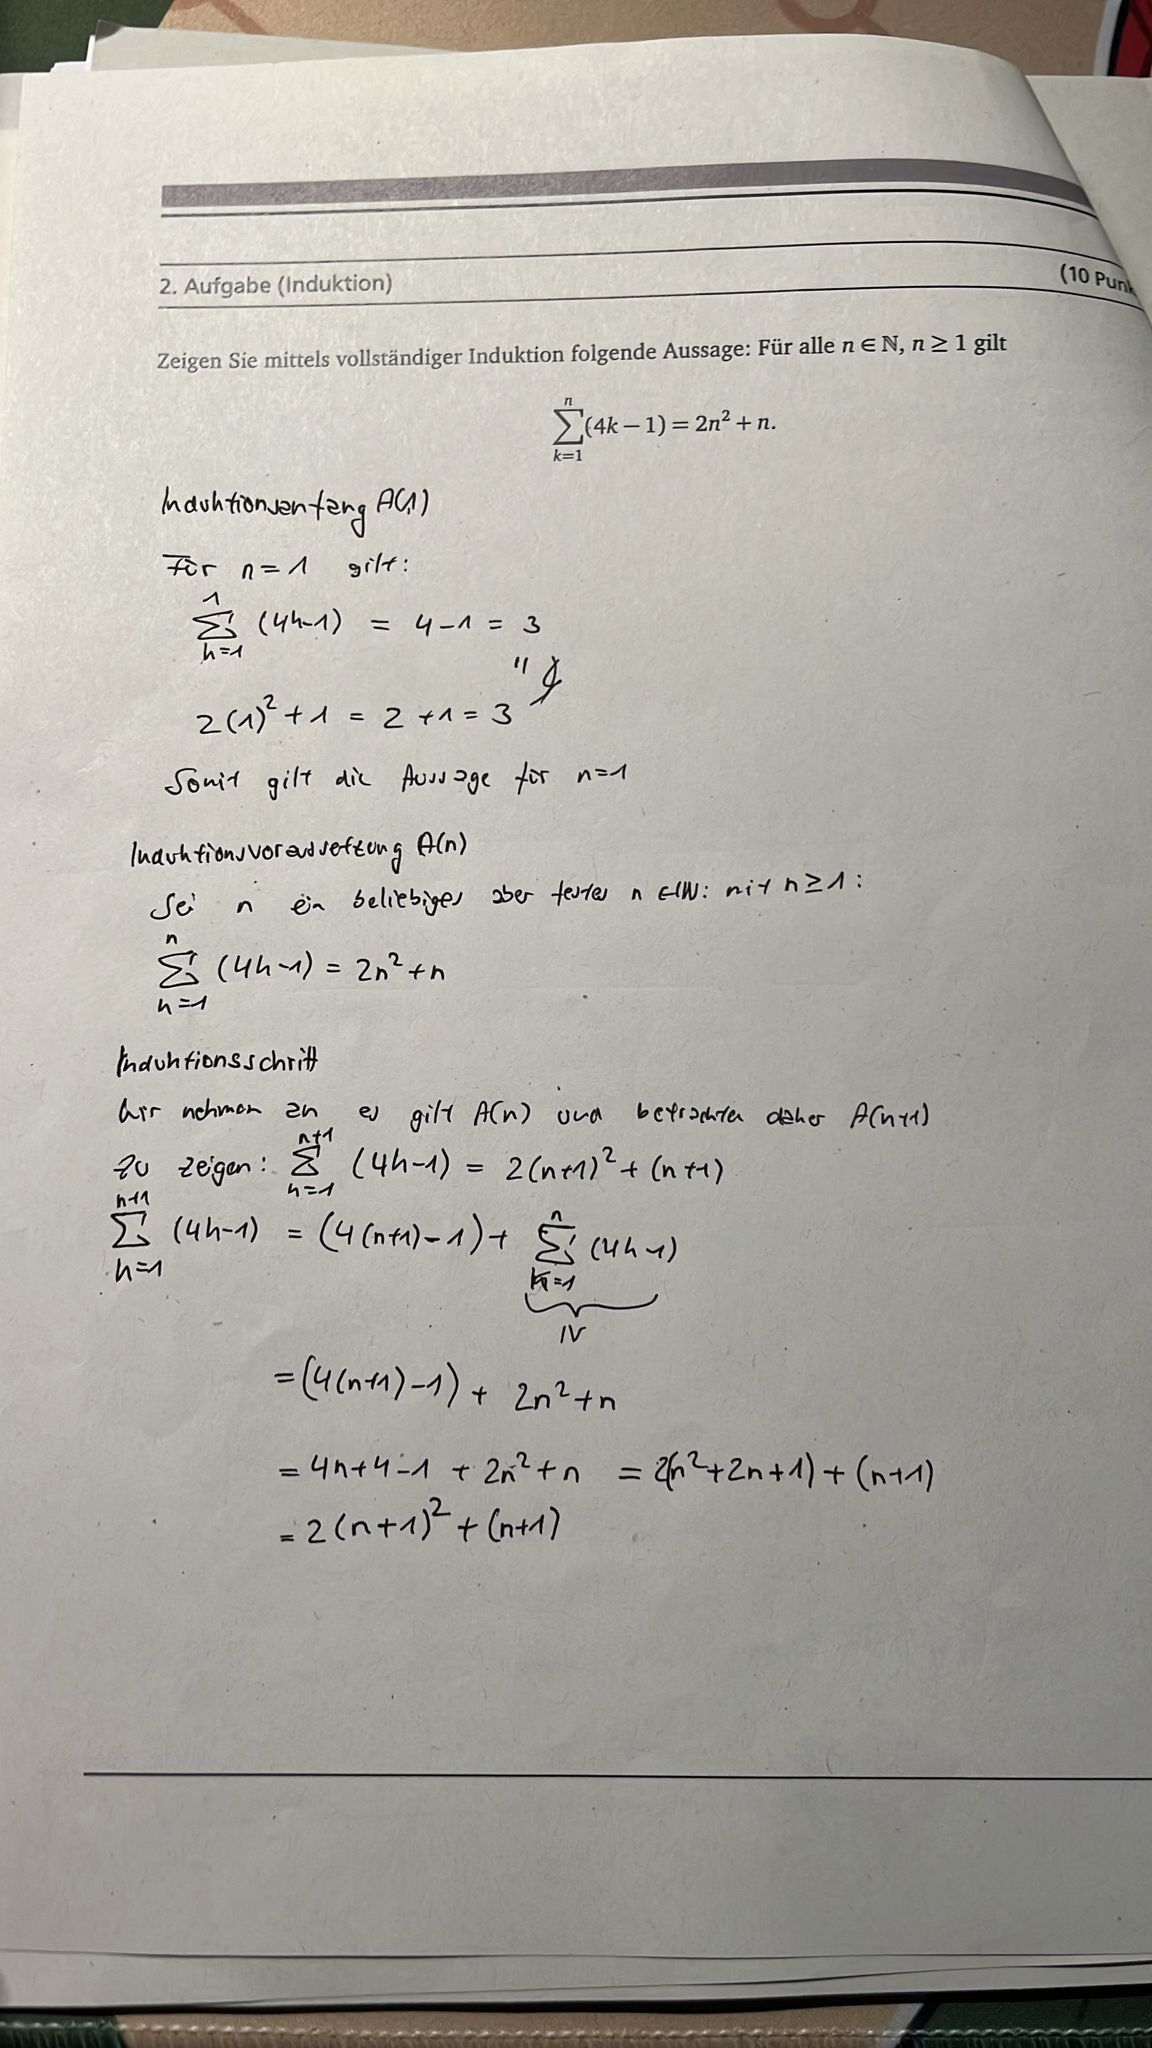 2. Aufgabe (Induktion) (10 Punk
Zeigen Sie mittels vollständiger Induktion folgende Aussage: Für alle n ∈ ℕ, n ≥ 1 gilt
∑_{k=1}^{n} (4k − 1) = 2n² + n.
Induktionsanfang A(1)
Für n = 1 gilt:
∑_{k=1}^{1} (4k-1) = 4 - 1 = 3
"
2(1)² + 1 = 2 + 1 = 3
Somit gilt die Aussage für n=1
Induktionsvoraussetzung A(n)
Sei n ein beliebiges aber festes n ∈ ℕ: mit n ≥ 1:
∑_{k=1}^{n} (4k-1) = 2n² + n
Induktionsschritt
Wir nehmen an es gilt A(n) und betrachten daher A(n+1)
Zu zeigen: ∑_{k=1}^{n+1} (4k-1) = 2(n+1)² + (n+1)
∑_{k=1}^{n+1} (4k-1) = (4(n+1)-1) + ∑_{k=1}^{n} (4k-1)
IV
= (4(n+1)-1) + 2n² + n
= 4n+4-1 + 2n² + n = 2(n²+2n+1) + (n+1)
= 2(n+1)² + (n+1)